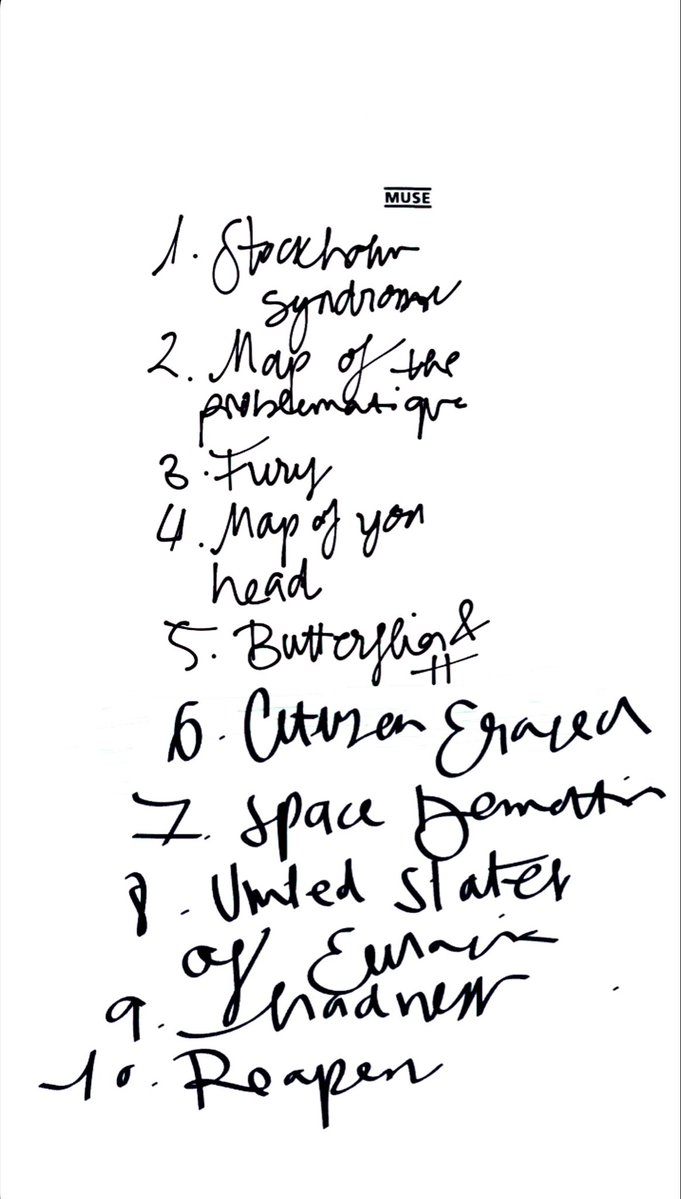 MUSE
1. Stockholm
syndrome
2. Map of the
problematique
3. Fury
4. Map of your
head
5. Butterflies &
H
6. Citizen Erased
7. Space Dementia
8. United States
of Eurasia
9. Madness
10. Reapers